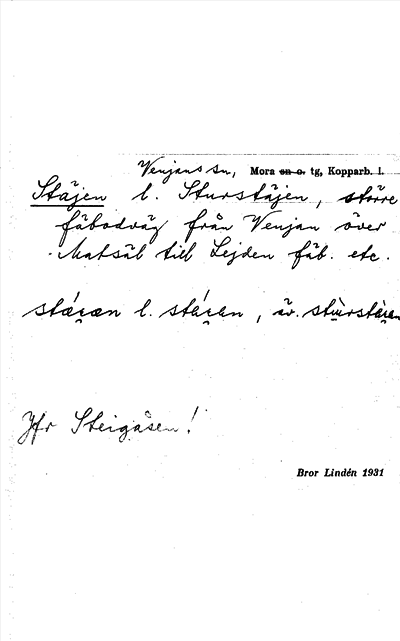 Venjans sn, Mora sn o. tg, Kopparb. l.
Stäjen l. Sturstäjen, större
fäbodväg från Venjan över
Matsäl till Lejden fäb. etc.
Jfr Steigåsen!
Bror Lindén 1931